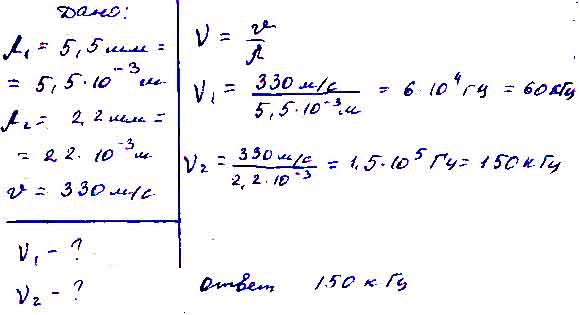 Дано:
λ₁ = 5,5 мм =
= 5,5·10⁻³ м
λ₂ = 2,2 мм =
= 2,2·10⁻³ м
v = 330 м/с
ν₁ - ?
ν₂ - ?
ν = v/λ
ν₁ = 330 м/с / 5,5·10⁻³ м = 6·10⁴ гц = 60 кГц
ν₂ = 330 м/с / 2,2·10⁻³ = 1,5·10⁵ Гц = 150 к Гц
ответ 150 к Гц